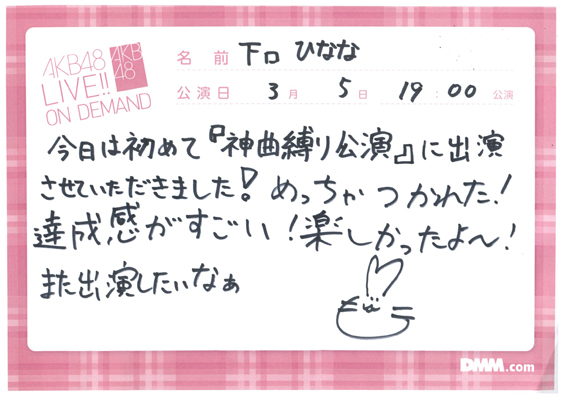 AKB48
LIVE!!
ON DEMAND
AKB
48
名前 下口 ひなな
公演日 3月 5日 19:00 公演
今日は初めて『神曲縛り公演』に出演
させていただきました! めっちゃつかれた!
達成感がすごい!楽しかったよ〜!
また出演したいなぁ
DMM.com